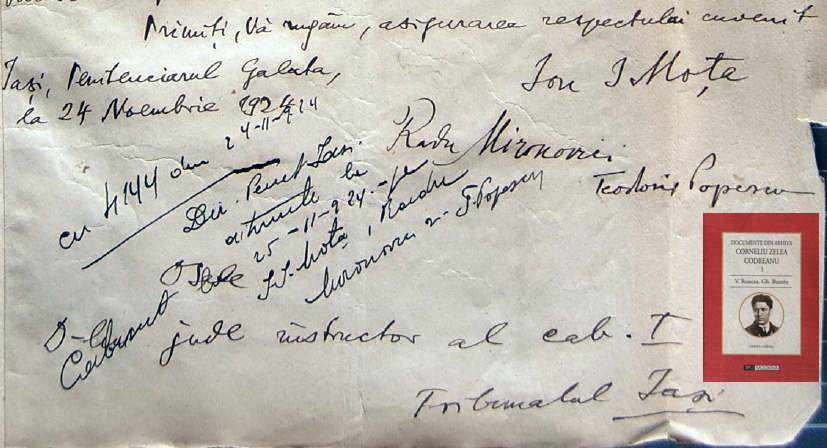 Primiți, Vă rugăm, asigurarea respectului cuvenit
Iași, Penitenciarul Galata,
la 24 Noembrie 1924
Ion I Moța
Radu Mironovici
Teodosie Popescu
cu 4144 din 24-11-924
Dir. Penit Iași.
25-11-924.
I.I. Moța, Radu
Mironovici T. Popescu
jude instructor al cab. I
Tribunalul Iași
DOCUMENTE DIN ARHIVA
CORNELIU ZELEA
CODREANU
1
V. Roncea, Gh. Buzatu
TIPO MOLDOVA